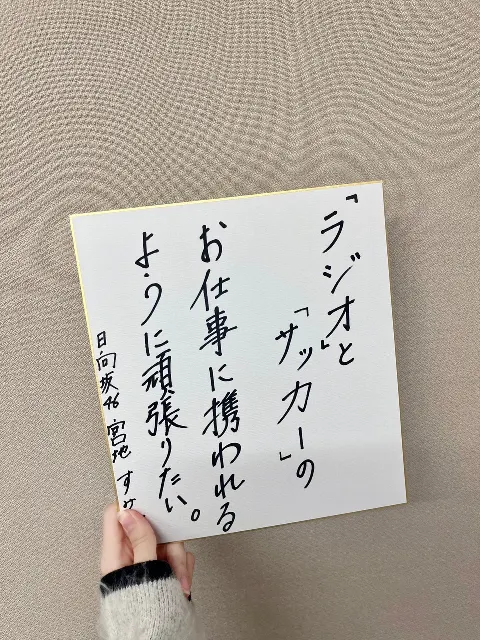 「ラジオ」と
「サッカー」の
お仕事に携われる
ように頑張りたい。
日向坂46 宮地 すみ